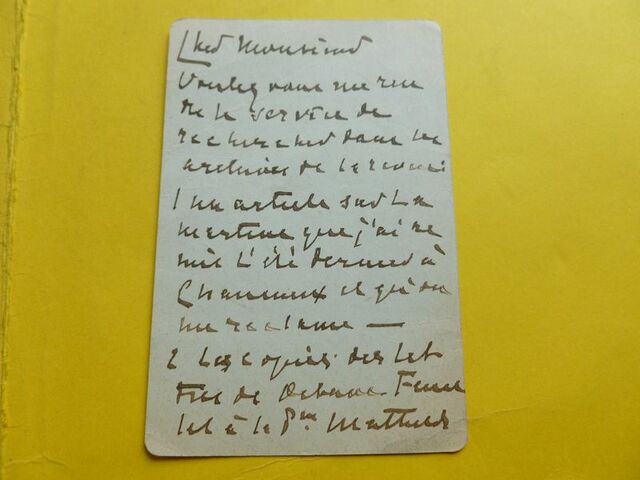 Cher Monsieur
Voulez vous me ren
re le service de
rechercher dans les
archives de la revue
1 un article sur La
martine que j'ai re
mis l'été dernier à
et qu'on
me réclame —
2 Les copies des let
tres de
à la Pss Mathilde